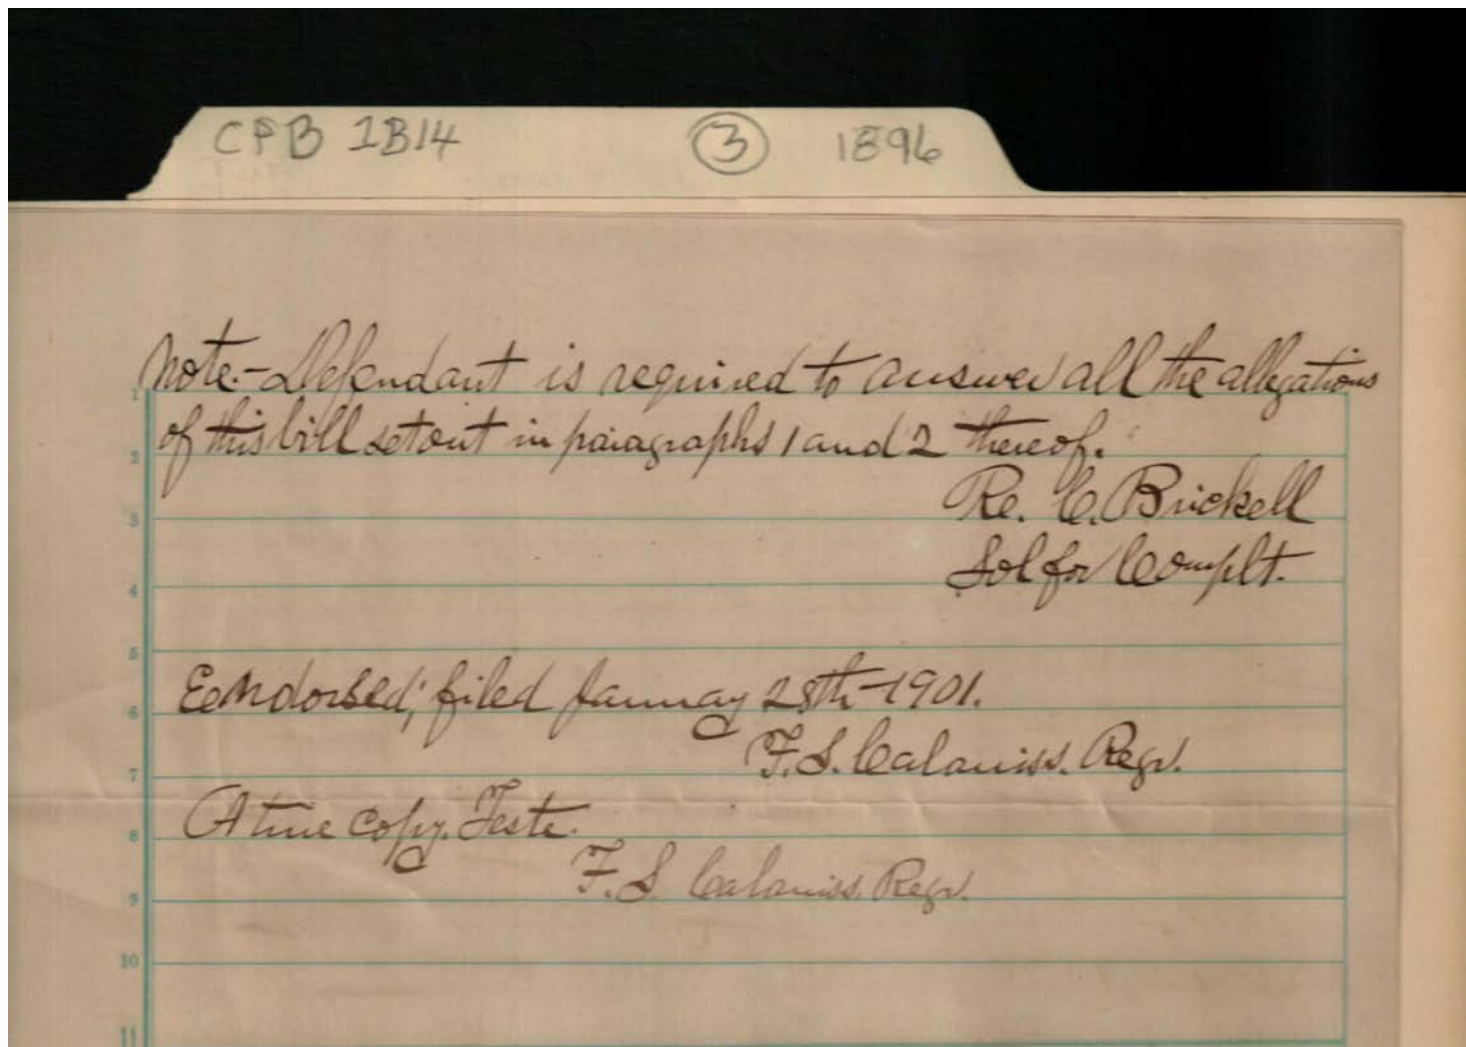 CPB 1B14 3 1896
Note.- Defendant is required to answer all the allegations
1
of this bill set out in paragraphs 1 and 2 thereof.
2
Re. C. Brickell
3
Sol for Complt.
4
5
Endorsed; filed January 28th-1901.
6
F.S. Calaniss. Regr.
7
A true copy. Teste.
8
F.S. Calaniss. Regr.
9
10
11